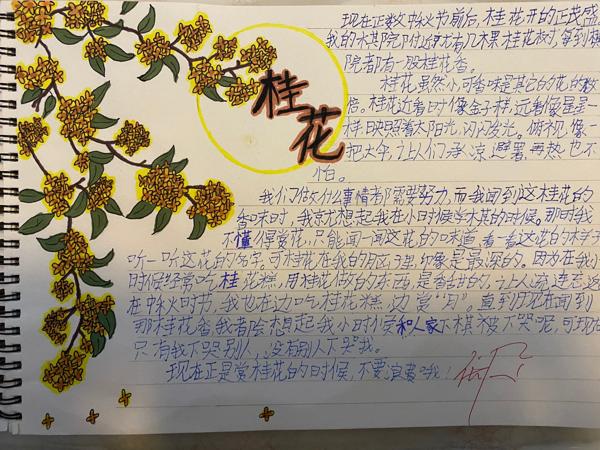 桂花
现在正数中秋节前后,桂花开的正茂盛
我的木其院附近尤有几木果桂花树,每到棋
院者都有一股桂花香。
桂花虽然小,可香味是其它的花的数
倍。桂花近看时像金子样,远看像星星一
样,映照着太阳光,闪闪发光。俯视,像一
把大伞,让人们乘凉,避署,再热也不
怕。
我们做什么事情都需要努力,而我闻到这桂花的
香味时,我就想起我在小时候学木其的时候。那时我
不懂得赏花,只能闻一闻这花的味道,看一看这花的样子
听一听这花的名字,可桂花在我的眼里,印象是最深的。因为在我小
时候经常吃桂花糕,用桂花做的东西,是香甜的,让人流连忘返
在中秋时节,我也在边吃桂花糕,边赏“月”。直到现在闻到
那桂花香,我者会想起我小时候和人家下棋被下哭呢,可现在
只有我下哭别人,没有别人下哭我。
现在正是赏桂花的时候,不要浪费哦!